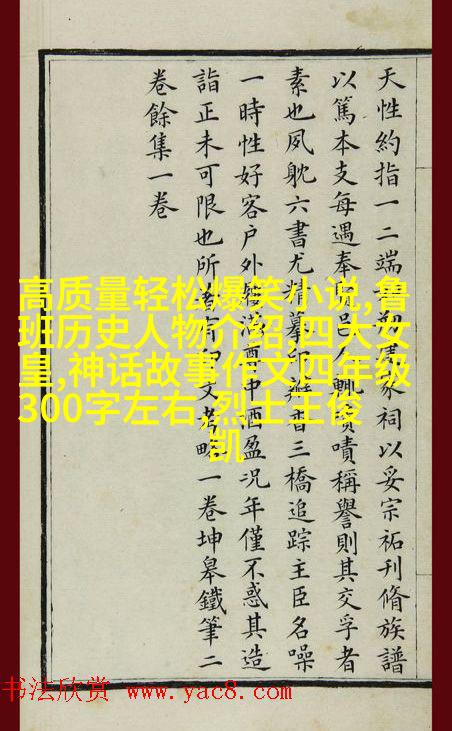 天性約指一二端家祠以妥宗祏刊脩族譜
以篤本支每遇奉邑人輒嘖稱譽則其交孚者
素也夙躭六書尤精摹印瓣香三橋追踪主臣名噪
一時性好客户外滿尊中酒盈况年僅不惑其造
詣正未可限也所印文考略一卷坤皋鐵筆二
卷餘集一卷
高质量轻松爆笑小说,鲁
班历史人物介绍,四大女
皇,神话故事作文四年级
300字左右,烈士王俊
凯
书法欣赏 www.yac8.com